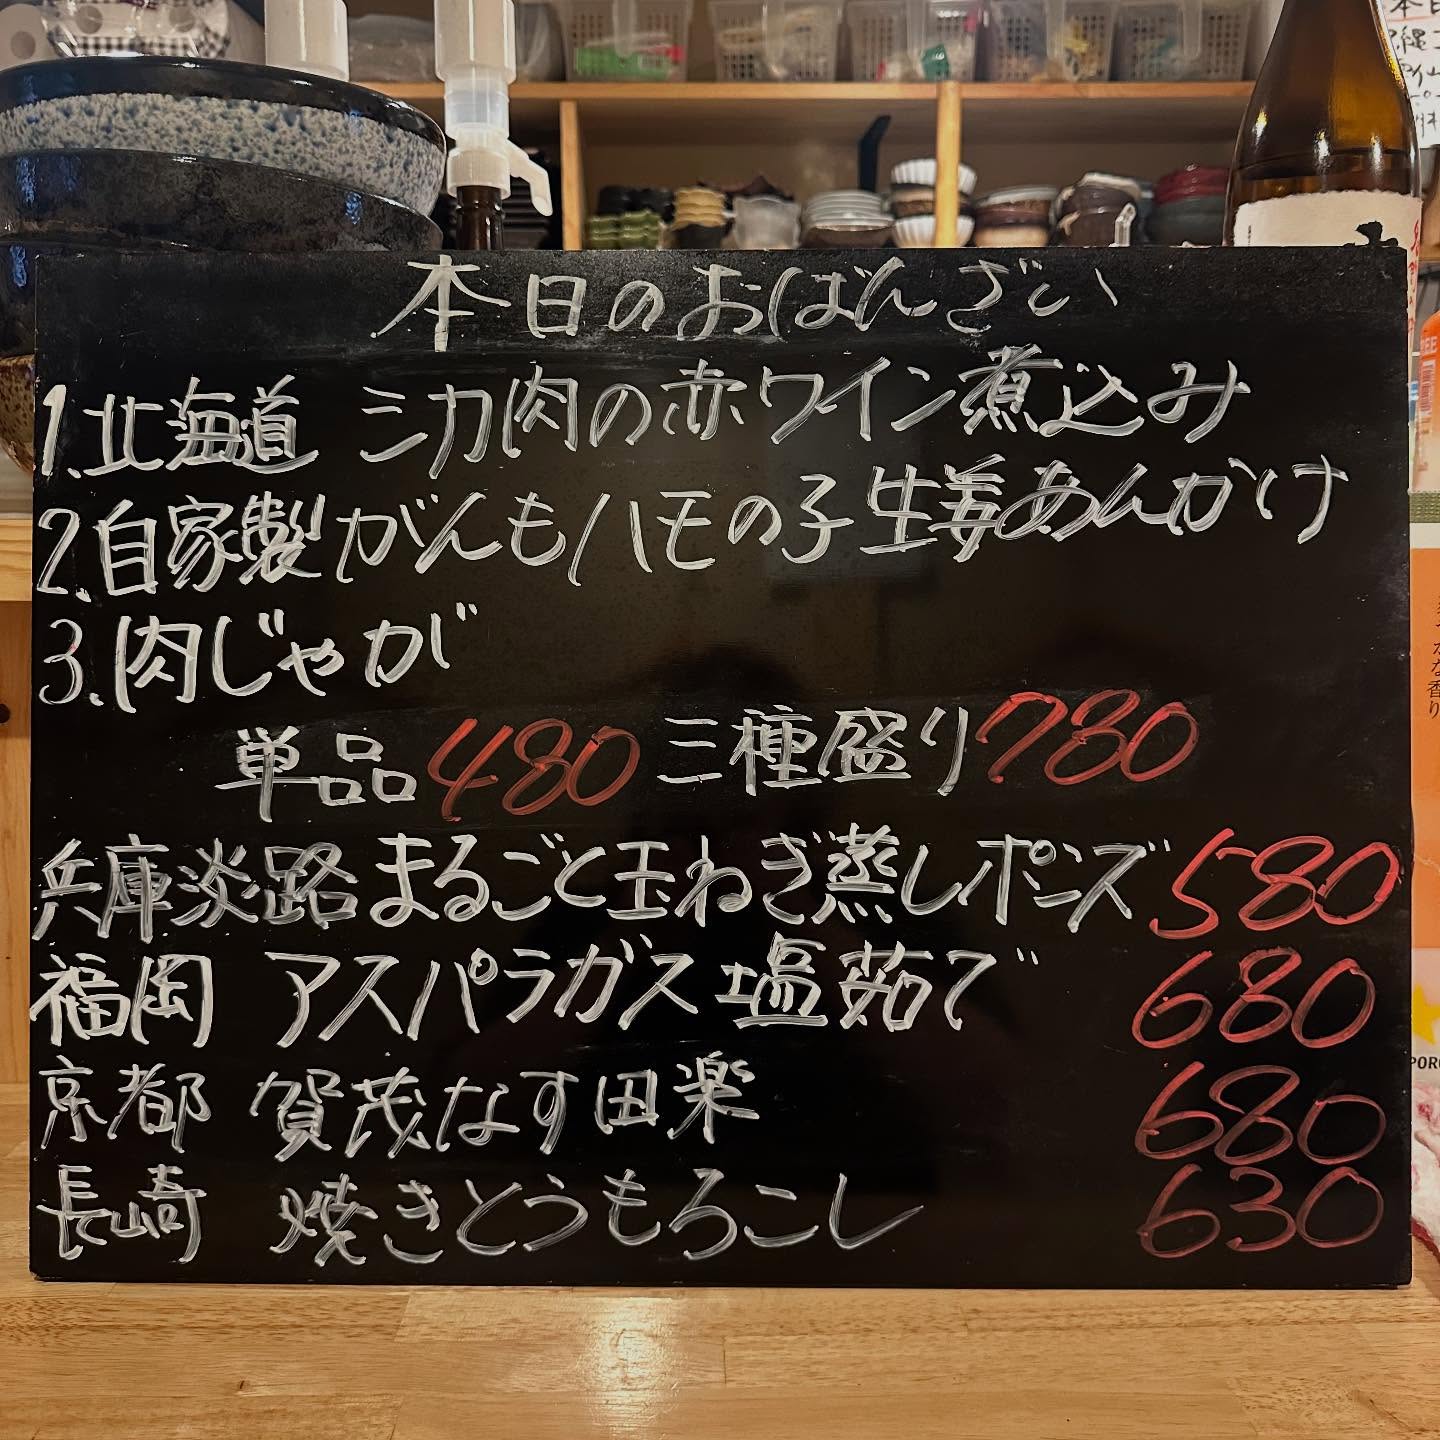 本日のおばんざい
1.北海道 シカ肉の赤ワイン煮込み
2.自家製がんも ハモの子生姜あんかけ
3.肉じゃが
単品480 三種盛り780
兵庫淡路まるごと玉ねぎ蒸しポンズ 580
福岡 アスパラガス塩茹で 680
京都 賀茂なす田楽 680
長崎 焼きとうもろこし 630